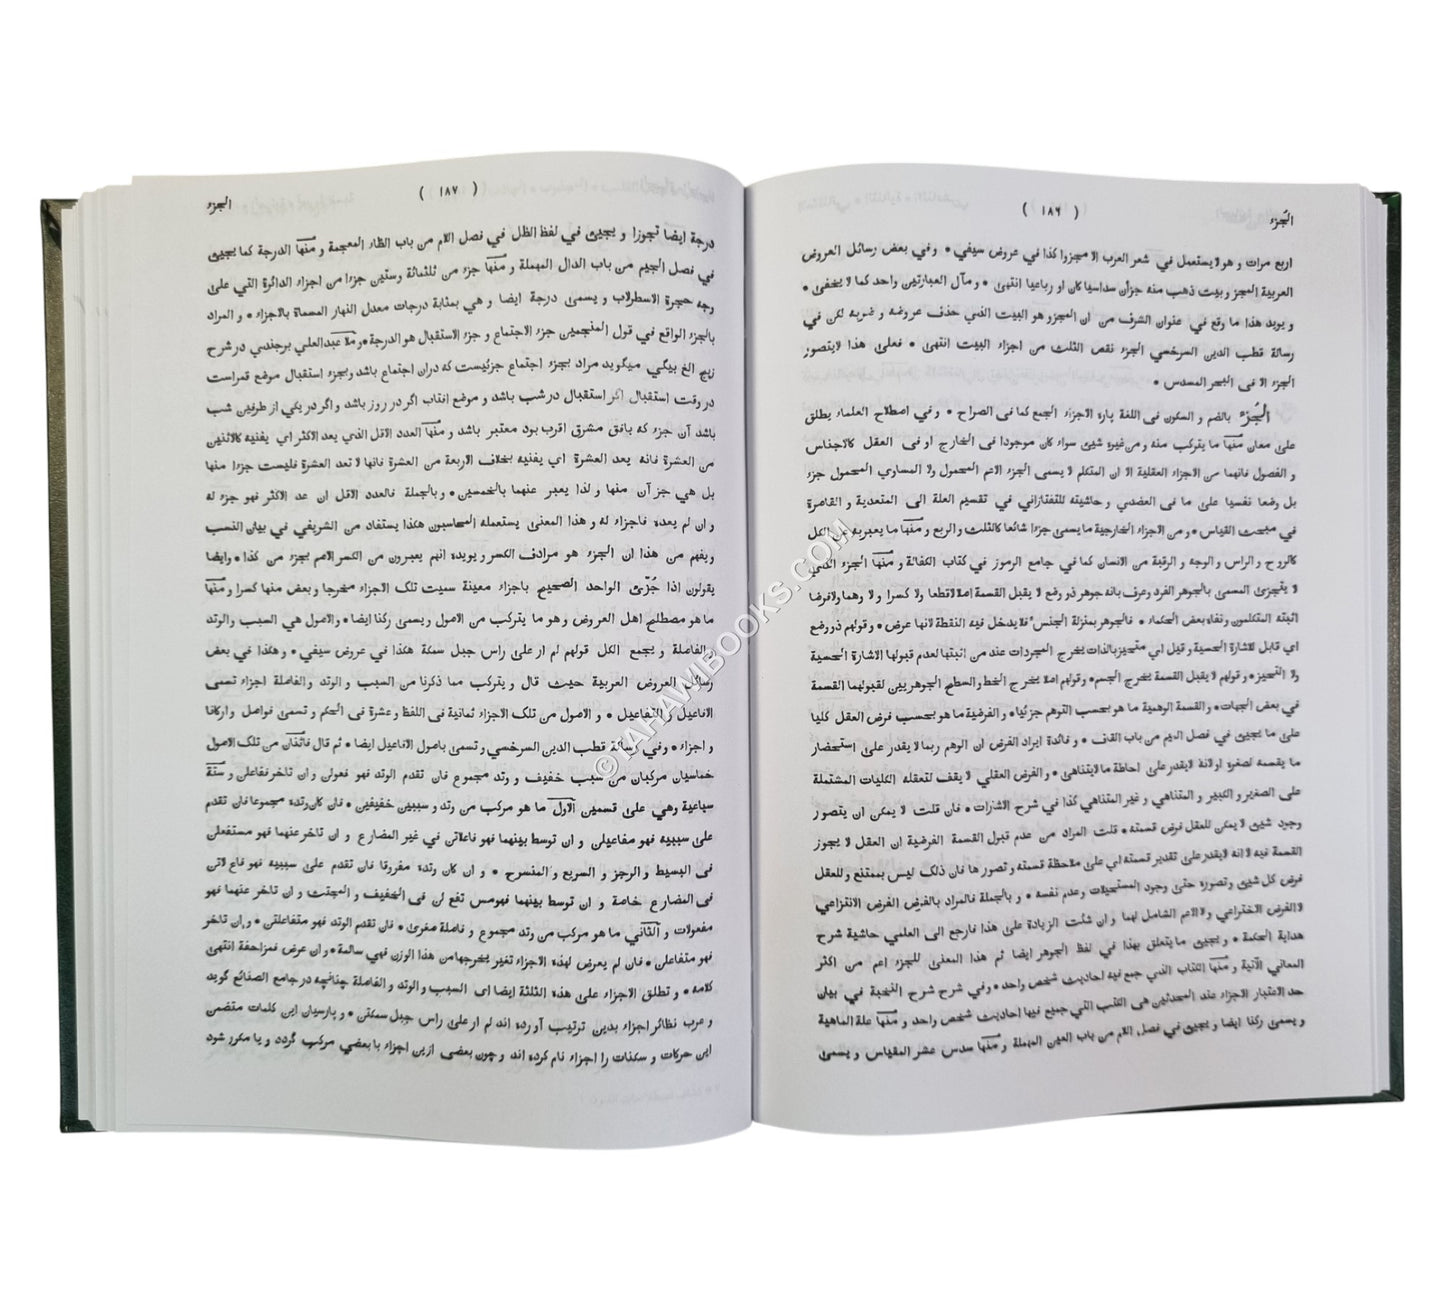 الجُزء
( ١٨٦ )
اربع مرات و هو لا يستعمل في شعر العرب الا مجزوا كذا في عروض سيفي • وفي بعض رسائل العروض
العربية المجزو بيت ذهب منه جزآن سداسيا كان او رباعيا انتهى • ومآل العبارتين واحد كما لا يخفى •
و يويد هذا ما وقع في عنوان الشرف من ان المجزو هو البيت الذي حذف عروضه و ضربه لكن في
رسالة قطب الدين السرخسي الجزء نقص الثلث من اجزاء البيت انتهى • فعلى هذا لايتصور
الجزء الا فى البحر المسدس •
الجُزءُ بالضم و السكون فى اللغة پاره الاجزاء الجمع كما فى الصراح • وفي اصطلاح العلماء يطلق
على معان منها ما يتركب منه ومن غيره شيئ سواء كان موجودا فى الخارج او فى العقل كالاجناس
و الفصول فانهما من الاجزاء العقلية الا ان المتكلم لا يسمى الجزء الاعم المحمول ولا المساوي المحمول جزء
بل وصفا نفسيا على ما فى العضدي و حاشيته للتفتازاني في تقسيم العلة الى المتعدية و القاصرة
في مبحث القياس • و من الاجزاء الخارجية ما يسمى جزءا شائعا كالثلث و الربع و منها ما يعبر به عن الكل
كالروح و الراس و الوجه و الرقبة من الانسان كما في جامع الرموز في كتاب الكفالة و منها الجزء الذي
لا يتجزى المسمى بالجوهر الفرد وعرف بانه جوهر ذو وضع لا يقبل القسمة اصلا لا قطعا ولا كسرا ولا وهما ولا فرضا
اثبته المتكلمون ونفاه بعض الحكماء • فالجوهر بمنزلة الجنس فلا يدخل فيه النقطة لانها عرض • وقولهم ذو وضع
اي قابل للاشارة الحسية وقيل اي متحيز بالذات يخرج المجردات عند من اثبتها لعدم قبولها الاشارة الحسية
ولا التحيز • وقولهم لا يقبل القسمة يخرج الجسم • وقولهم اصلا يخرج الخط والسطح الجوهريين لقبولهما القسمة
في بعض الجهات • والقسمة الوهمية ما هو بحسب التوهم جزئيا • والفرضية ما هو بحسب فرض العقل كليا
على ما يجيئ في فصل الميم من باب القاف • و فائدة ايراد الفرض ان الوهم ربما لا يقدر على استحضار
ما يقسمه لصغره او لانه لا يقدر على احاطة ما لا يتناهى • و الفرض العقلي لا يقف لتعقله الكليات المشتملة
على الصغير و الكبير و المتناهي و غير المتناهي كذا في شرح الاشارات • فان قلت لا يمكن ان يتصور
وجود شيئ لا يمكن للعقل فرض قسمته • قلت المراد من عدم قبول القسمة الفرضية ان العقل لا يجوز
القسمة فيه لا انه لا يقدر على تقدير قسمته اي على ملاحظة قسمته و تصورها فان ذلك ليس بممتنع و للعقل
فرض كل شيئ وتصوره حتى وجود المستحيلات وعدم نفسه • و بالجملة فالمراد بالفرض الفرض الانتزاعي
لا الفرض الاختراعي ولا الاعم الشامل لهما و ان شئت الزيادة على هذا فارجع الى العلمي حاشية شرح
هداية الحكمة • و يجيئ ما يتعلق بهذا في لفظ الجوهر ايضا ثم هذا المعنى للجزء اعم من اكثر
المعاني الآتية و منها الكتاب الذي جمع فيه احاديث شخص واحد • وفي شرح شرح النخبة في بيان
حد الاعتبار الاجزاء عند المحدثين هى الكتب التي جمع فيها احاديث شخص واحد و منها علة الماهية
و يسمى ركنا ايضا و يجيئ في فصل اللام من باب العين المهملة و منها سدس عشر المقياس و يسمى
( ١٨٧ )
الجزء
درجة ايضا تجوزا و يجيئ في لفظ الظل في فصل اللام من باب الظاء المعجمة و منها الدرجة كما يجيئ
في فصل الجيم من باب الدال المهملة و منها جزء من ثلثمائة وستين جزءا من اجزاء الدائرة التي على
وجه حجرة الاسطرلاب و يسمى درجة ايضا و هي بمثابة درجات معدل النهار المسماة بالاجزاء • و المراد
بالجزء الواقع في قول المنجمين جزء الاجتماع و جزء الاستقبال هو الدرجة • و ملا عبدالعلي برجندي در شرح
زيچ الغ بيگي ميگويد مراد بجزء اجتماع جزئيست كه دران اجتماع باشد وبجزء استقبال موضع قمراست
در وقت استقبال اگر استقبال در شب باشد و موضع افتاب اگر در روز باشد و اگر در يكي از طرفين شب
باشد آن جزء كه بافق مشرق اقرب بود معتبر باشد و منها العدد الاقل الذي يعد الاكثر اي يفنيه كالاثنين
من العشرة فانه يعد العشرة اي يفنيه بخلاف الاربعة من العشرة فانها لا تعد العشرة فليست جزءا منها
بل هي جزآن منها ولذا يعبر عنهما بالخمسين • وبالجملة فالعدد الاقل ان عد الاكثر فهو جزء له
و ان لم يعده فاجزاء له و هذا المعنى يستعمله المحاسبون هكذا يستفاد من الشريفي في بيان النسب
ويفهم من هذا ان الجزء هو مرادف الكسر و يويده انهم يعبرون من الكسر الاعم بجزء من كذا • وايضا
يقولون اذا جُزّئ الواحد الصحيح باجزاء معينة سميت تلك الاجزاء مخرجا وبعض منها كسرا و منها
ما هو مصطلح اهل العروض وهو ما يتركب من الاصول ويسمى ركنا ايضا • والاصول هي السبب والوتد
والفاصلة و يجمع الكل قولهم لم ار على راس جبل سمكة هكذا في عروض سيفي • و هكذا في بعض
رسائل العروض العربية حيث قال و يتركب مما ذكرنا من السبب و الوتد و الفاصلة اجزاء تسمى
الافاعيل و التفاعيل • و الاصول من تلك الاجزاء ثمانية فى اللفظ و عشرة فى الحكم و تسمى فواصل و اركانا
و اجزاء • وفي رسالة قطب الدين السرخسي و تسمى باصول الافاعيل ايضا • ثم قال فاثنان من تلك الاصول
خماسيان مركبان من سبب خفيف و وتد مجموع فان تقدم الوتد فهو فعولن و ان تاخر ففاعلن و ستة
سباعية وهي على قسمين الاول ما هو مركب من وتد و سببين خفيفين • فان كان وتده مجموعا فان تقدم
على سببيه فهو مفاعيلن و ان توسط بينهما فهو فاعلاتن في غير المضارع و ان تاخر عنهما فهو مستفعلن
فى البسيط و الرجز و السريع و المنسرح • و ان كان وتده مفروقا فان تقدم على سببيه فهو فاع لاتن
فى المضارع خاصة و ان توسط بينهما فهو مس تفع لن فى الخفيف و المجتث و ان تاخر عنهما فهو
مفعولات و الثاني ما هو مركب من وتد مجموع و فاصلة صغرى • فان تقدم الوتد فهو مفاعلتن • و ان تاخر
فهو متفاعلن • فان لم يعرض لهذه الاجزاء تغير يخرجها من هذا الوزن فهي سالمة • و ان عرض فمزاحفة انتهى
كلامه • و تطلق الاجزاء على هذه الثلثة ايضا اى السبب و الوتد و الفاصلة چنانچه در جامع الصنائع گويد
و عرب نظائر اجزاء بدين ترتيب آورده اند لم ار على راس جبل سمكتن • و پارسيان اين كلمات متضمن
اين حركات و سكنات را اجزاء نام كرده اند و چون بعضى ازين اجزاء با بعضي مركب گردد و يا مكرر شود
©TAHAWIBOOKS.COM